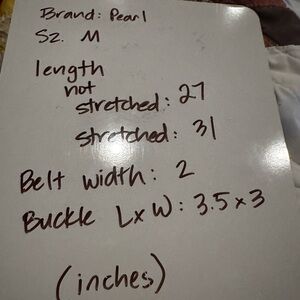 Brand: Pearl
Sz. M
length
not
stretched: 27
stretched: 31
Belt width: 2
Buckle LxW: 3.5x3
(inches)